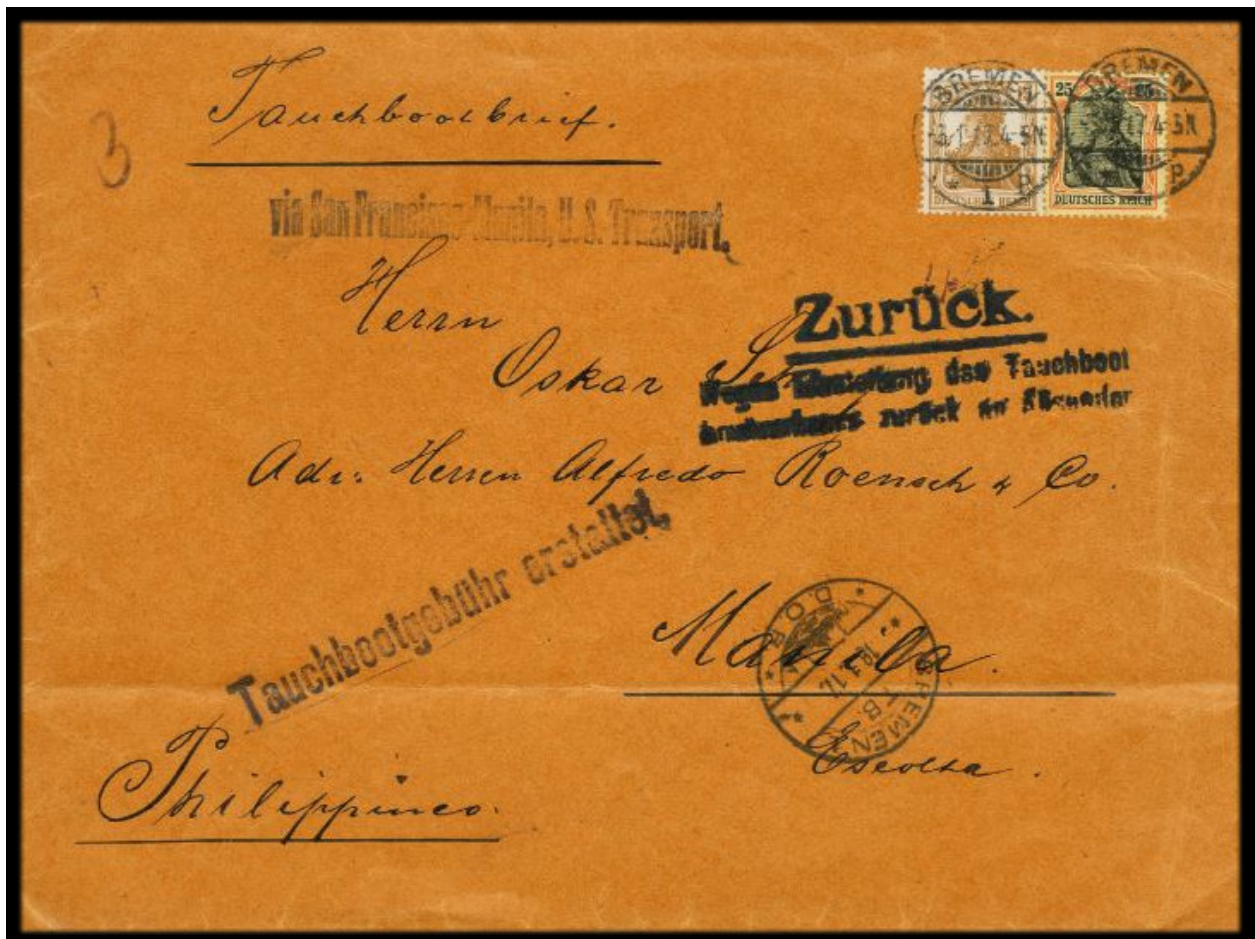 Tauchbootbrief.
3
BREMEN
BREMEN
25 25
-3.1.17.4-5N
17.4-5N
1
DEUTSCHES REICH
DEUTSCHES REICH
via San Francisco-Manila, U.S. Transport.
Herrn
Zurück.
Oskar
Wegen Einstellung des Tauchboot
briefverkehrs zurück an Absender
Adr: Herren Alfredo Roensch & Co.
Tauchbootgebühr erstattet.
Manila.
BREMEN
Escolta.
Philippines.